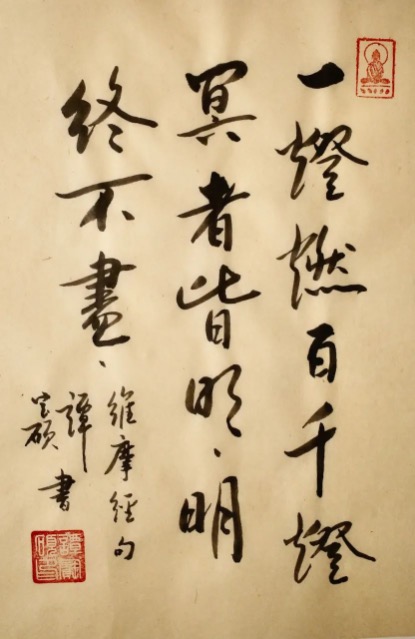 一燈燃百千燈
冥者皆明、明
終不盡、
維摩經句
譚
宝碩書